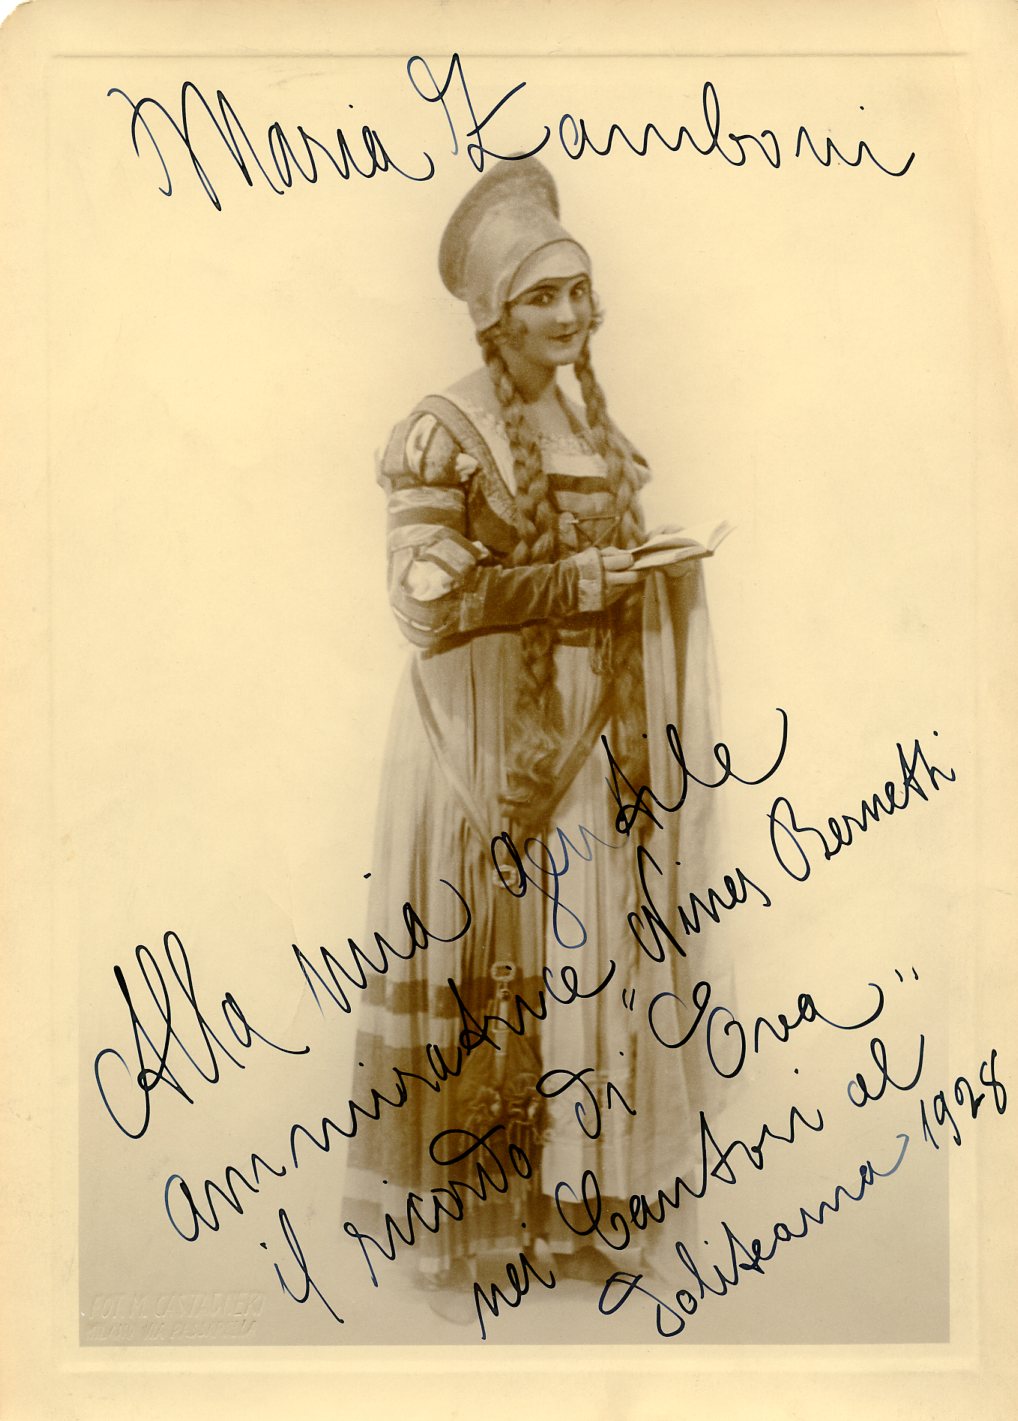 Maria Zamboni
Alla mia gentile
ammiratrice Nines Bernetti
il ricordo di "Eva"
nei Cantori al
Politeama 1928